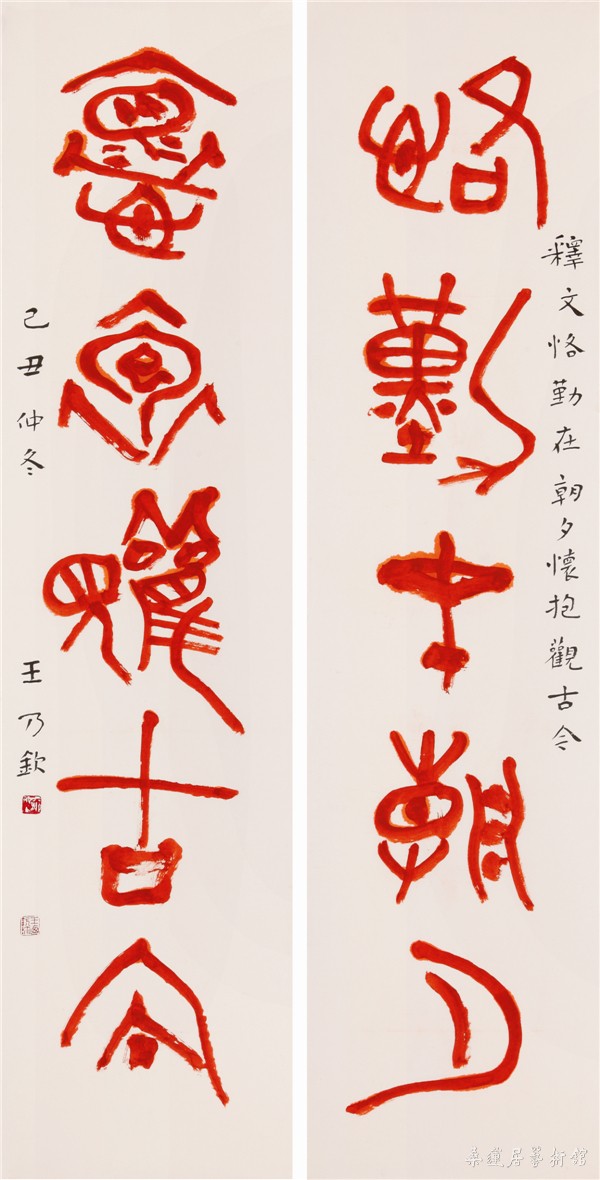 恪勤在朝夕
釋文恪勤在朝夕懷抱觀古今
懷抱觀古今
己丑仲冬 王乃欽
桑蓮居藝術館